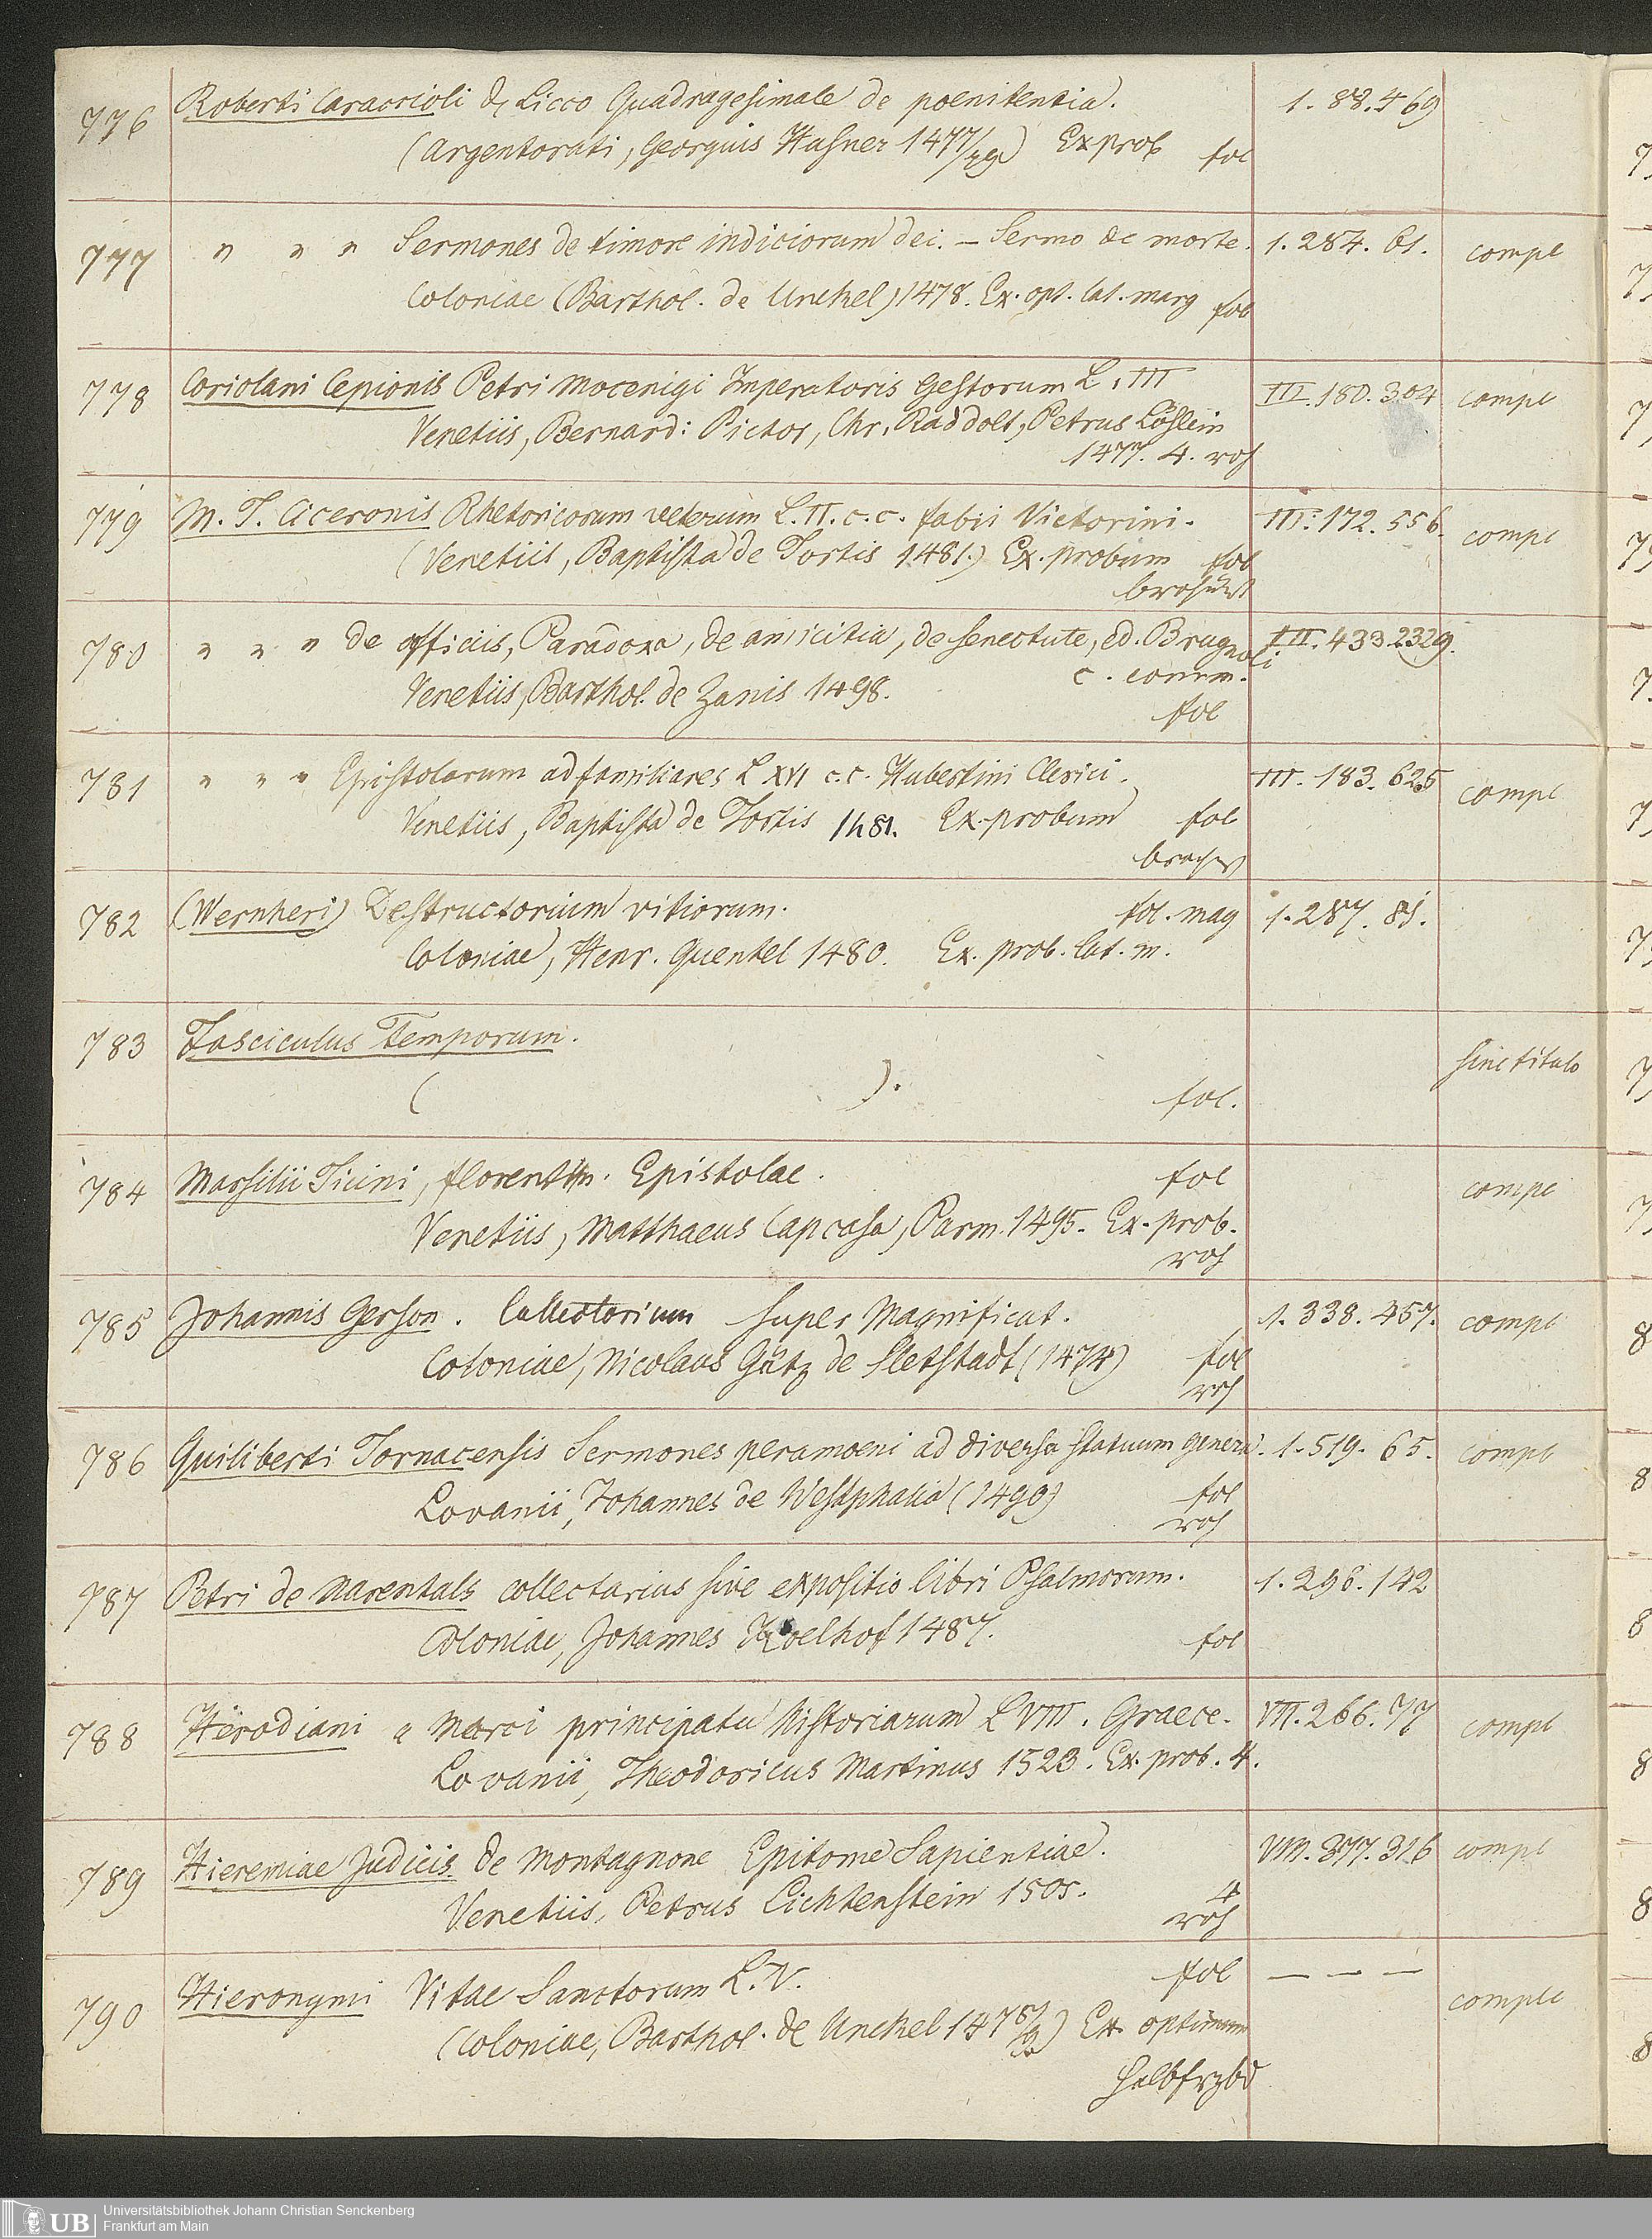 776 Roberti Caraccioli de Licco Quadragesimale de poenitentia. 1. 88. 469
(Argentorati, Georguis Husner 1477/79) Ex prob fol
777 " " " Sermones de timore indiciorum dei. – Sermo de morte. 1. 284. 61. compl
Coloniae (Barthol. de Unckel) 1478. Ex. opt. lat. marg fol
778 Coriolani Cepionis Petri Mocenigi Imperatoris Gestorum L. III III. 180. 304 compl
Venetiis, Bernard: Pictor, Chr. Raddolt, Petrus Löslein
1477. 4. roh
779 M. T. Ciceronis Rhetoricorum veterum L. II. c. c. fabii Victorini. III. 172. 556. compl
(Venetiis, Baptista de Tortis 1481.) Ex. probum fol
brosürt
780 " " " de officiis, Paradoxa, de amicitia, de senectute, ed. Brugnoli III. 433. 2329.
c. comm.
Venetiis, Barthol. de Zanis 1498.
fol
781 " " " Epistolarum ad familiares L XVI c. c. Hubertini Clerici. III. 183. 625 compl
Venetiis, Baptista de Tortis 1481. Ex. probum fol
782 (Wernheri) Destructorium vitiorum. fol. mag 1. 287. 81.
Coloniae, Henr. Quentel 1480. Ex. prob. lat. m.
783 Fasciculus Temporum. sine titulo
( ). fol.
784 Marsilii Ficini, florentin. Epistolae. fol compl
Venetiis, Matthaeus Capcasa, Parm. 1495. Ex. prob.
roh
785 Johannis Gerson. Collectorium super Magnificat. 1. 338. 457. compl
Coloniae, Nicolaus Götz de Sletstadt (1474) fol
roh
786 Guiliberti Tornacensis Sermones peramoeni ad diversa statuum genera. 1. 519. 65. compl
Lovanii, Johannes de Westphalia (1490) fol
roh
787 Petri de Harentals collectarius sive expositio libri Psalmorum. 1. 296. 142
Coloniae, Johannes Koelhof 1487. fol
788 Herodiani a Marci principatu historiarum L VIII. Graece. VII. 266. 77 compl
Lovanii, Theodoricus Martinus 1523. Ex. prob. 4.
789 Hieremiae Judicis de Montagnone Epitome Sapientiae. VIII. 377. 316 compl
Venetiis, Petrus Lichtenstein 1505. 4
roh
790 Hieronymi Vitae Sanctorum L. V. fol – – – comple
(Coloniae, Barthol. de Unckel 1478/9) Ex. optimum
Halbfrzbd
UB
Universitätsbibliothek Johann Christian Senckenberg
Frankfurt am Main